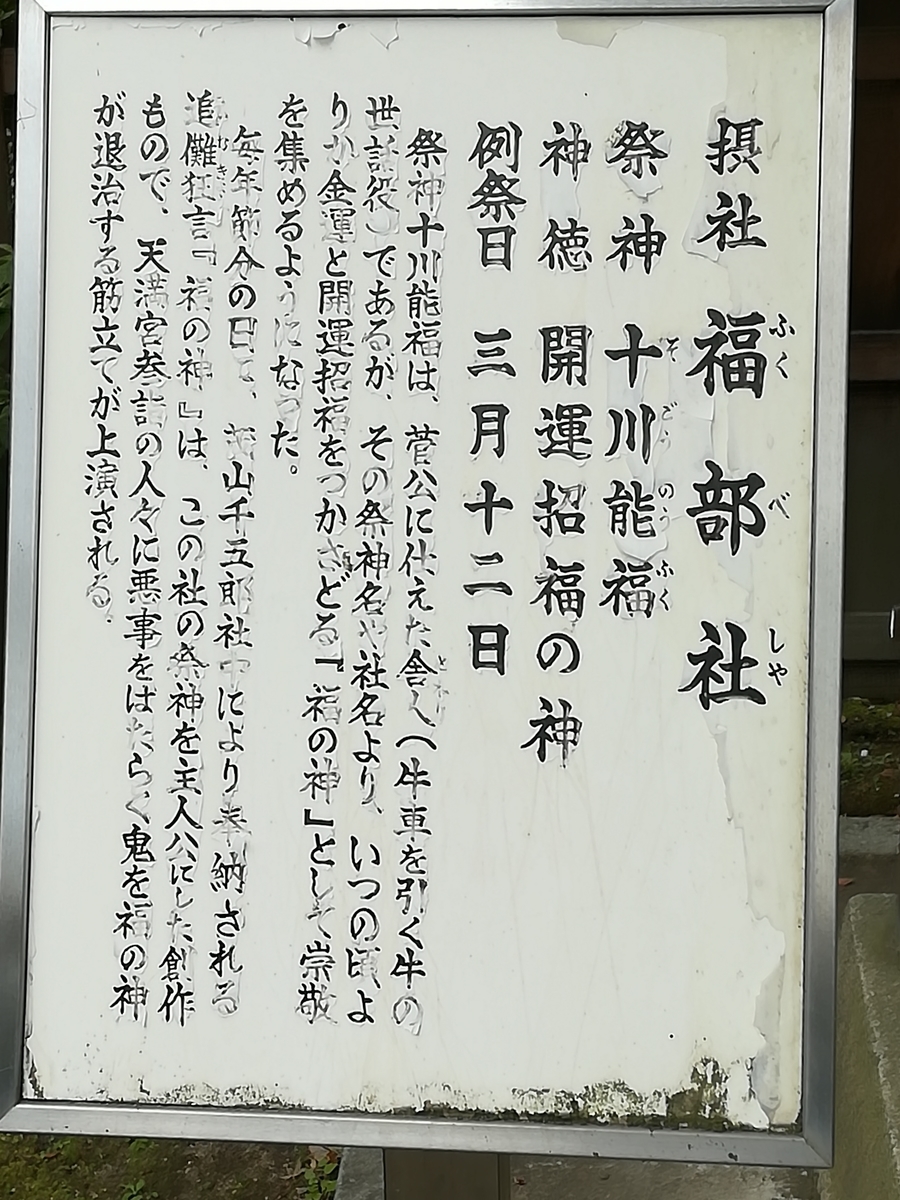 摂社 福部社
ふくべしゃ
祭神 十川能福
そごうのうふく
神徳 開運招福の神
例祭日 三月十二日
祭神十川能福は、菅公に仕えた舎人(牛車を引く牛の
とねり
世話役)であるが、その祭神名や社名より、いつの頃よ
りか金運と開運招福をつかさどる『福の神』として崇敬
を集めるようになった。
毎年節分の日に、茂山千五郎社中により奉納される
追儺狂言『福の神』は、この社の祭神を主人公にした創作
もので、天満宮参詣の人々に悪事をはたらく鬼を福の神
が退治する筋立てが上演される。